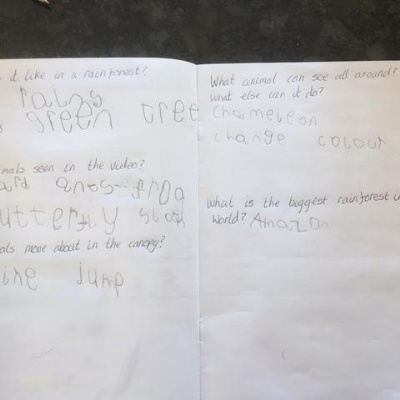 it like in a rainforest?
rains
green tree
seen in the video?
ants frog
sloth
move about in the canopy?
jump
What animal can see all around?
what else can it do?
chameleon
change colour
what is the biggest rainforest in
world? Amazon